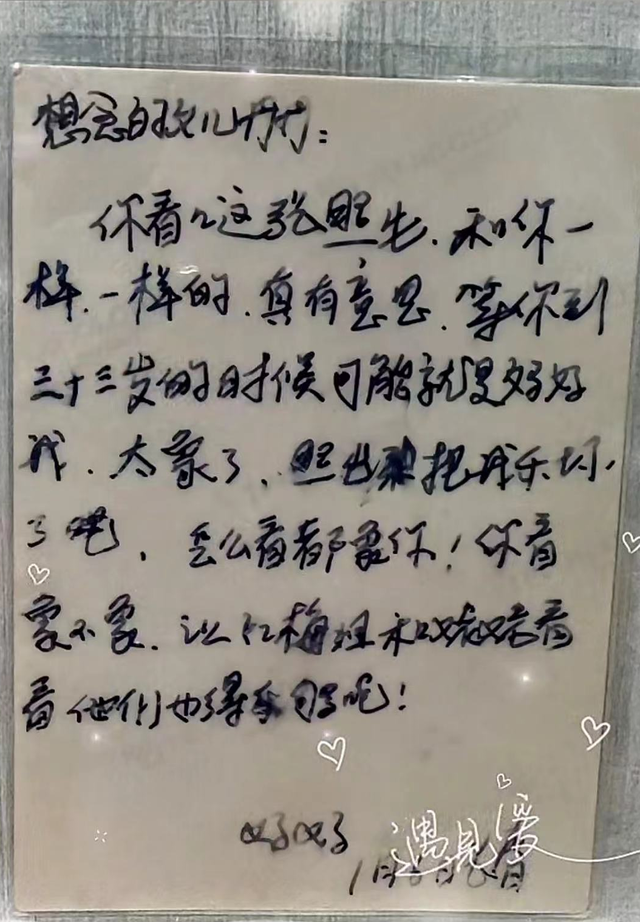 想念的孩儿竹竹：
你看看这张照片，和你一
样一样的，真有意思，等你到
三十三岁的时候可能就是妈妈
我，太象了，照片把我乐坏
了吧，怎么看都象你！你看
象不象，让红梅姐和姥姥看
看他们也得乐了吧！
妈妈
遇见爱
1月6日